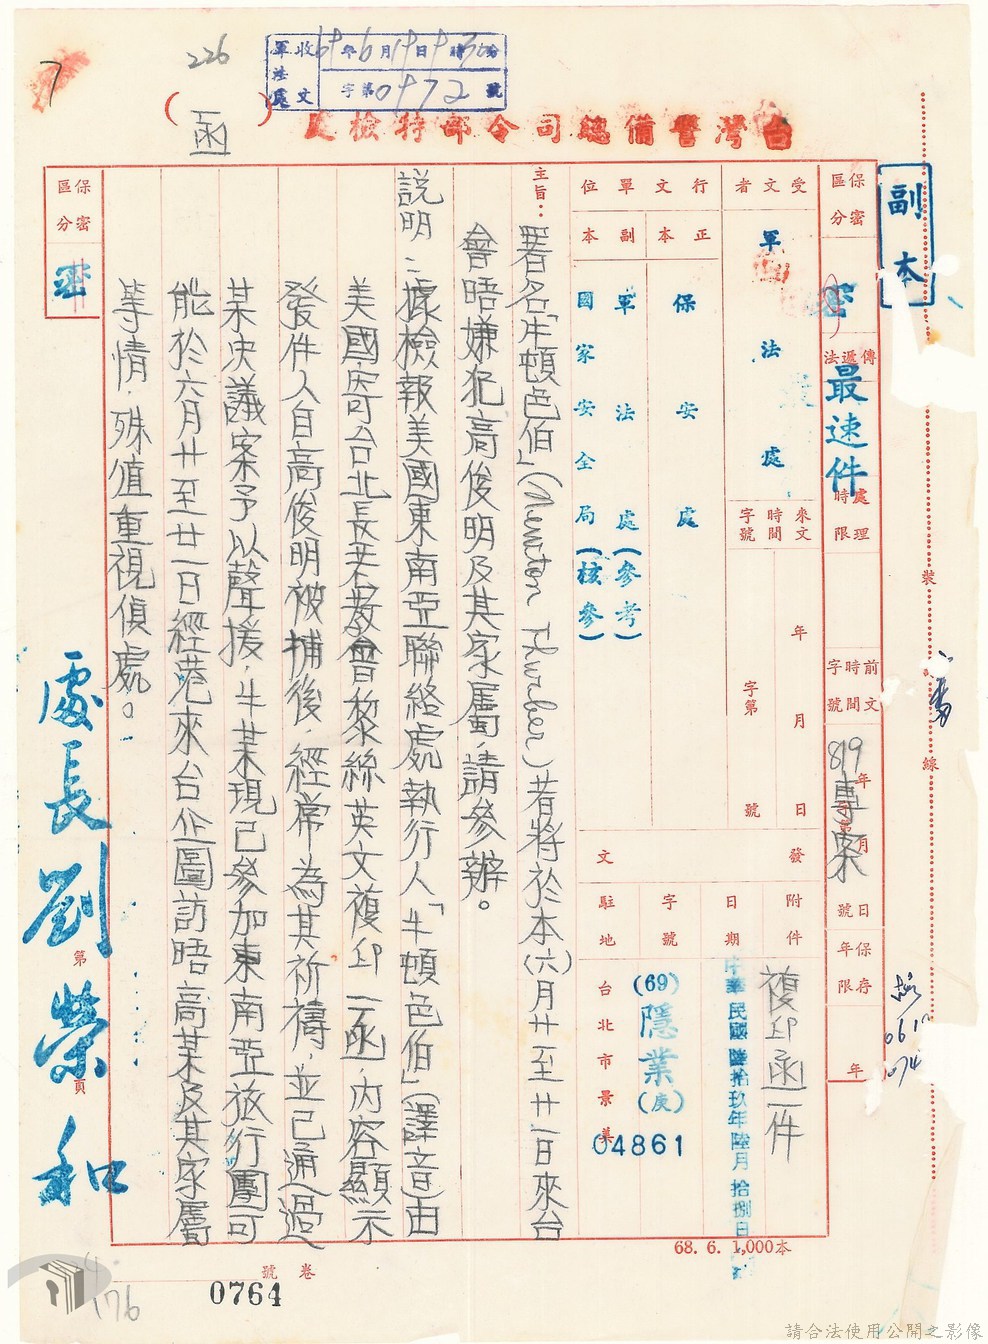 副本
裝
線
保密區分
密
傳遞法
最速件
處理時限
前文時間字號
年
月
日
字第
號
819專案
保存年限
年
受文者
軍法處
來文時間字號
年
月
日
字第
號
行文單位
正本
保安處
副本
軍法處(參考)
國家安全局(核參)
發文
附件
複印函一件
日期
中華民國陸拾玖年陸月拾捌日
字號
(69)隱業(戾)
04861
駐地
台北市景美
台灣警備總司令部特檢處
(函)
226
7
軍法處收文
69年6月19日9時30分
字第0972號
主旨:
署名「牛頓色伯」(Newton Thurber)者將於本(六)月廿至廿一日來台
會晤嫌犯高俊明及其家屬,請參辦。
說明:據檢報美國東南亞聯絡處執行人「牛頓色伯」(譯音)由
美國寄台北長老教會黎絲英文複印一函,內容顯示
發件人自高俊明被捕後,經常為其祈禱,並已通過
某決議案予以聲援,牛某現已參加東南亞旅行團可
能於六月廿至廿一日經港來台企圖訪晤高某及其家屬
等情,殊值重視偵處。
保密區分
密
處長劉榮和
第
頁
68. 6. 1,000本
卷號
0764
176
請合法使用公開之影像